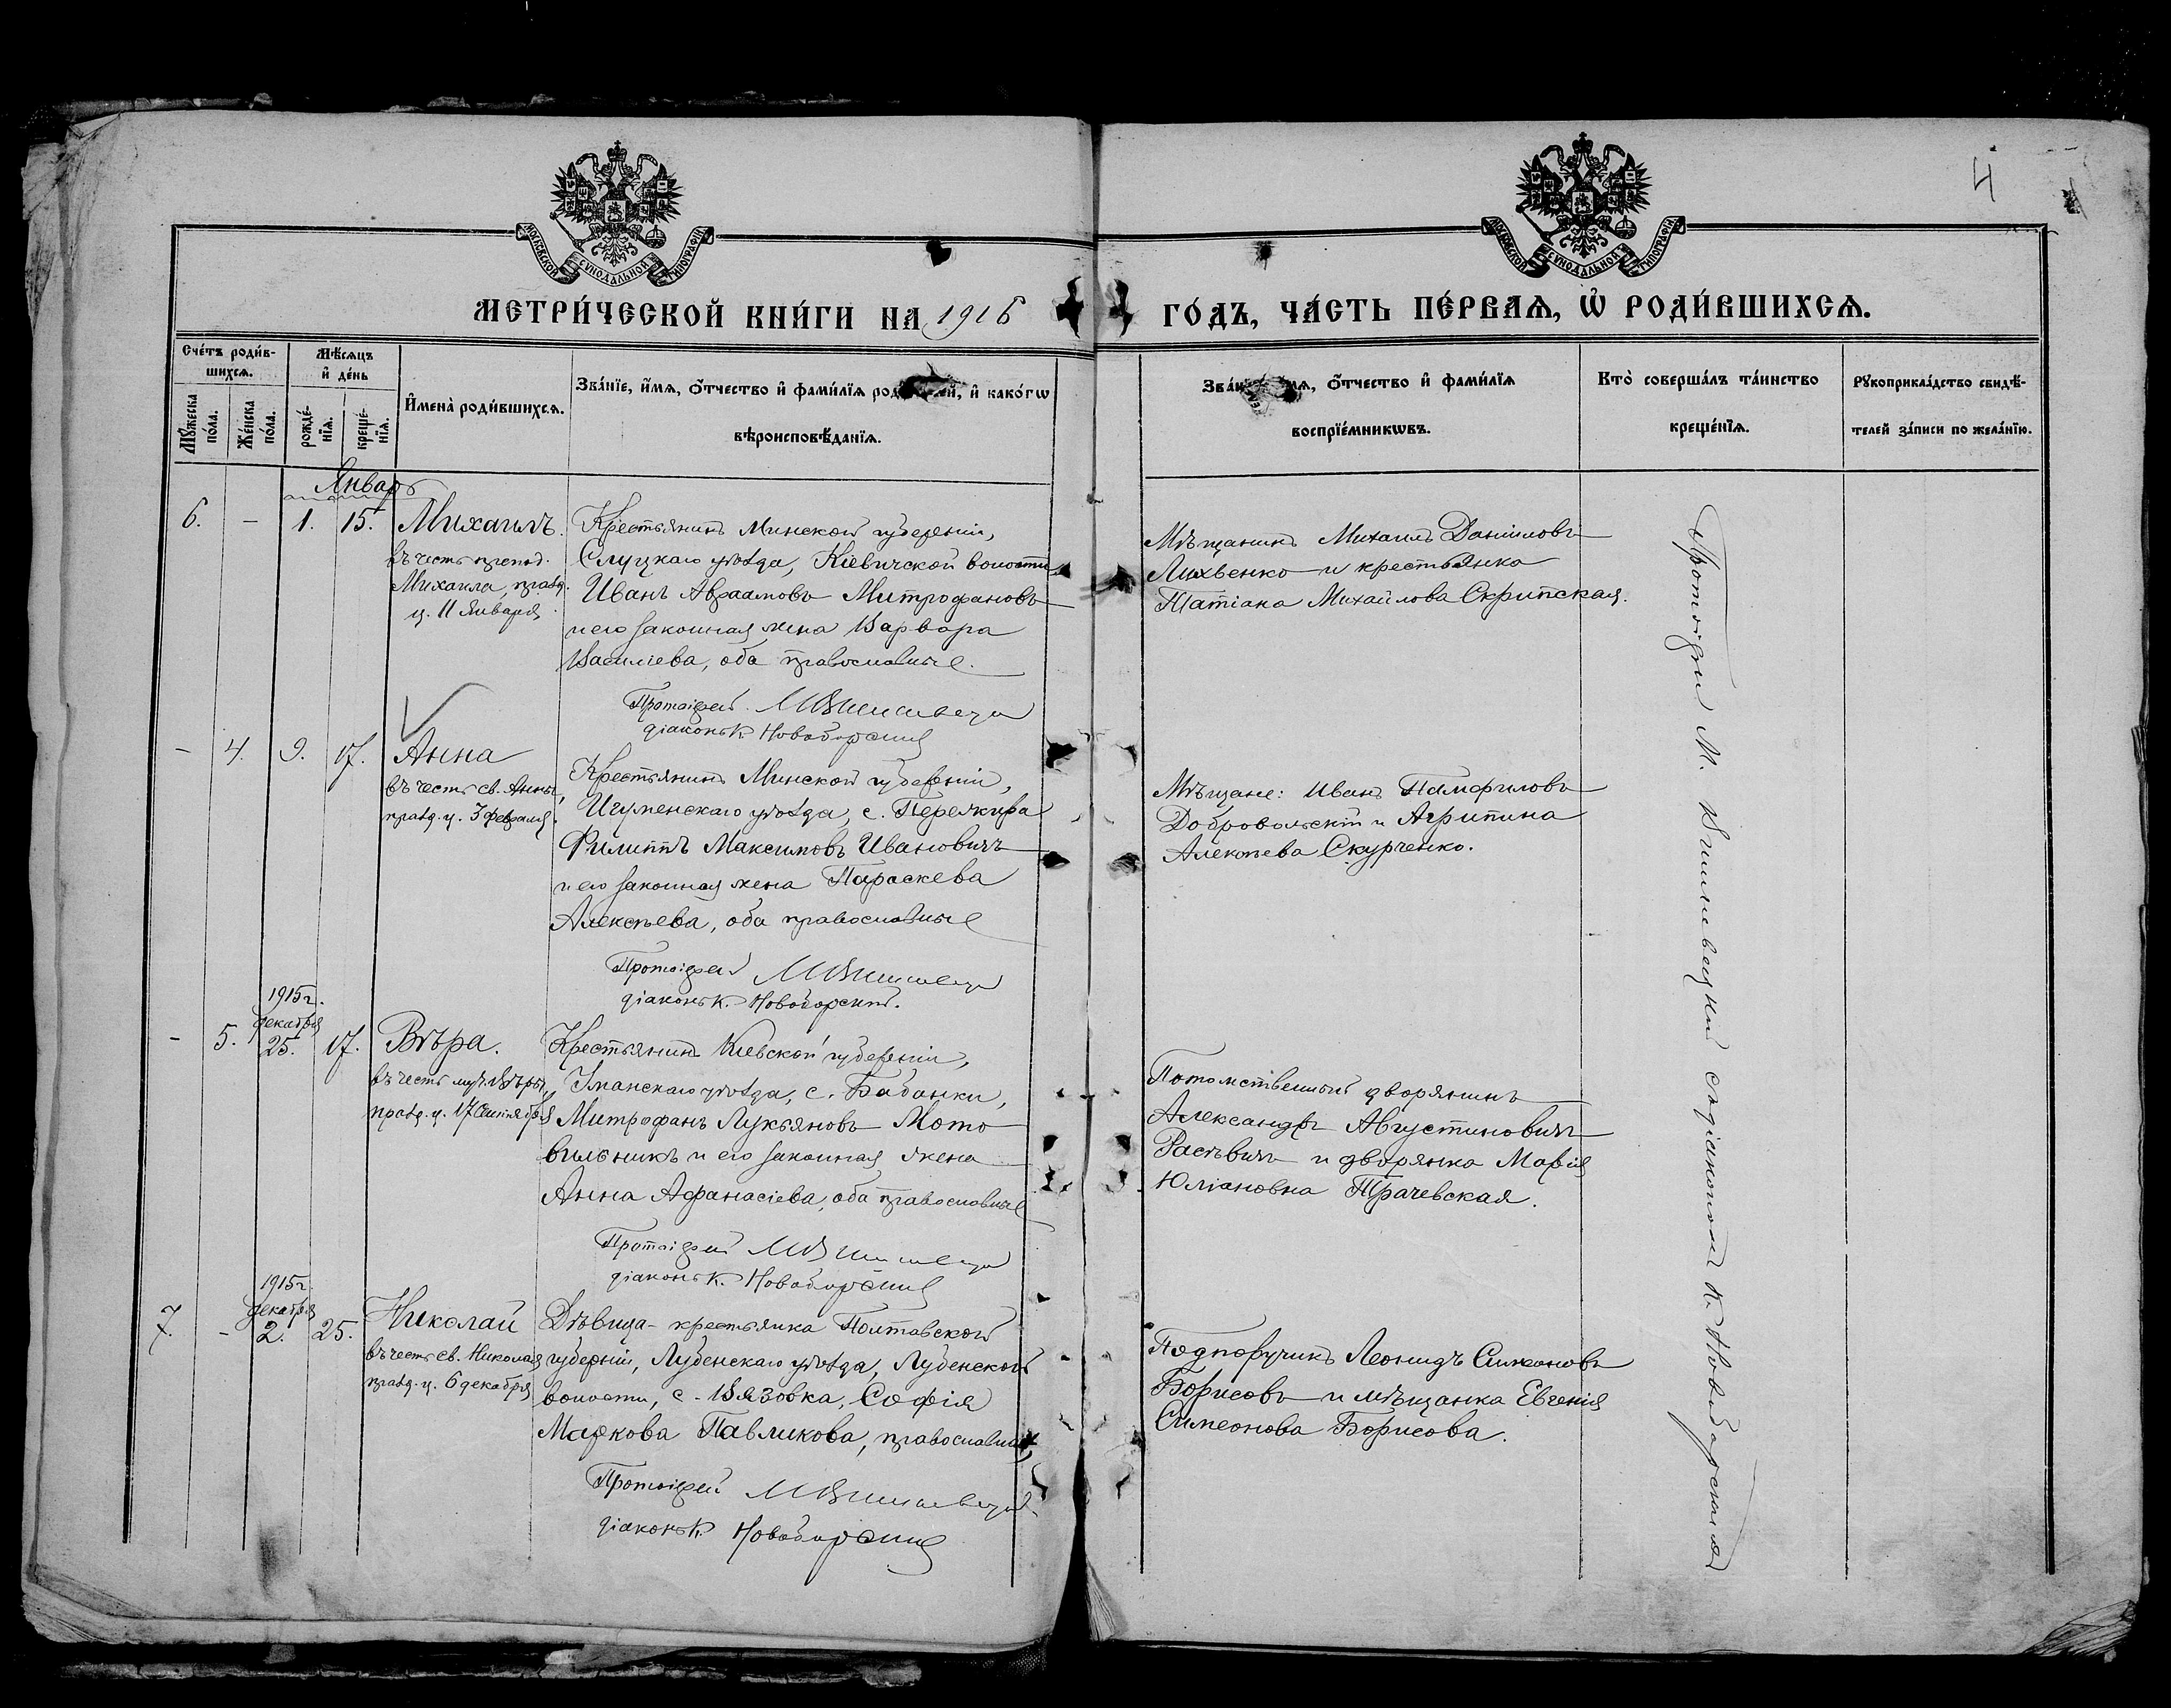 4
МОСКОВСКОЙ СѴНОДАЛЬНОЙ ТИПОГРАФІИ
МОСКОВСКОЙ СѴНОДАЛЬНОЙ ТИПОГРАФІИ
МЕТРИ́ЧЕСКОЙ КНИ́ГИ НА 1916 ГО́ДЪ, ЧА́СТЬ ПЕ́РВАѦ, Ѡ҆ РОДИ́ВШИХСѦ.
Сче́тъ роди́в-
шихсѧ.
Мꙋ́жеска по́ла.
Же́нска по́ла.
Мѣ́сѧцъ
и҆ де́нь
рожде́-
нїѧ.
креще́-
нїѧ.
И҆мена̀ роди́вшихсѧ.
Зва́нїе, и҆́мѧ, ѻ҆́тчество и҆ фами́лїѧ и҆ како́гѡ
вѣроисповѣ́данїѧ.
ѻ҆́тчество и҆ фами́лїѧ
воспрїе́мникѡвъ.
Кто̀ соверша́лъ та́инство
креще́нїѧ.
Рꙋкоприкла́дство свидѣ́-
телей за́писи по жела́нїю.
Январь
6. - 1. 15. Михаилъ.
въ честь препод.
Михаила, празд.
ц. 11 Января
Крестьянинъ Минской губерніи,
Слуцкаго уѣзда, Кіевичской волости
Иванъ Авраамовъ Митрофановъ
и его законная жена Варвара
Василіева, оба православные.
Протоіерей М Вишневецкій
діаконъ К. Новоборскій
Мѣщанинъ Михаилъ Даніиловъ
Лихвенко и крестьянка
Татіана Михайлова Скрипская.
- 4. 9. 17. Анна
въ честь св. Анны,
празд. ц. 3 февраля.
Крестьянинъ Минской губерніи,
Игуменскаго уѣзда, с. Пережира
Филиппъ Максимовъ Ивановичъ
и его законная жена Параскева
Алексѣева, оба православные
Протоіерей М Вишневецкій
діаконъ К. Новоборскій.
Мѣщане: Иванъ Памфиловъ
Добровольскій и Агрипина
Алексѣева Скурченко.
1915 г.
декабря
- 5. 25. 17. Вѣра.
въ честь муч. Вѣры,
празд. ц. 17 Сентября
Крестьянинъ Кіевской губерніи,
Уманскаго уѣзда, с. Бабанки,
Митрофанъ Лукьяновъ Мото
вильникъ и его законная жена
Анна Афанасіева, оба православные
Протоіерей М Вишневецкій
діаконъ К. Новоборскій
Потомственный дворянинъ
Александръ Августиновичъ
и дворянка Марія
Юліановна Трачевская.
1915 г.
декабря
7. - 2. 25. Николай
въ честь св. Николая
празд. ц. 6 декабря
Дѣвица - крестьянка Полтавской
губерніи, Лубенскаго уѣзда, Лубенской
волости, с. Вязовка, Софія
Маркова Павликова, православная,
Протоіерей М Вишневецкій
діаконъ К. Новоборскій
Подпоручикъ Леонидъ Симеоновъ
Борисовъ и мѣщанка Евгенія
Симеонова Борисова.
Протоіерей М. Вишневецкій съ діакономъ К. Новоборскимъ